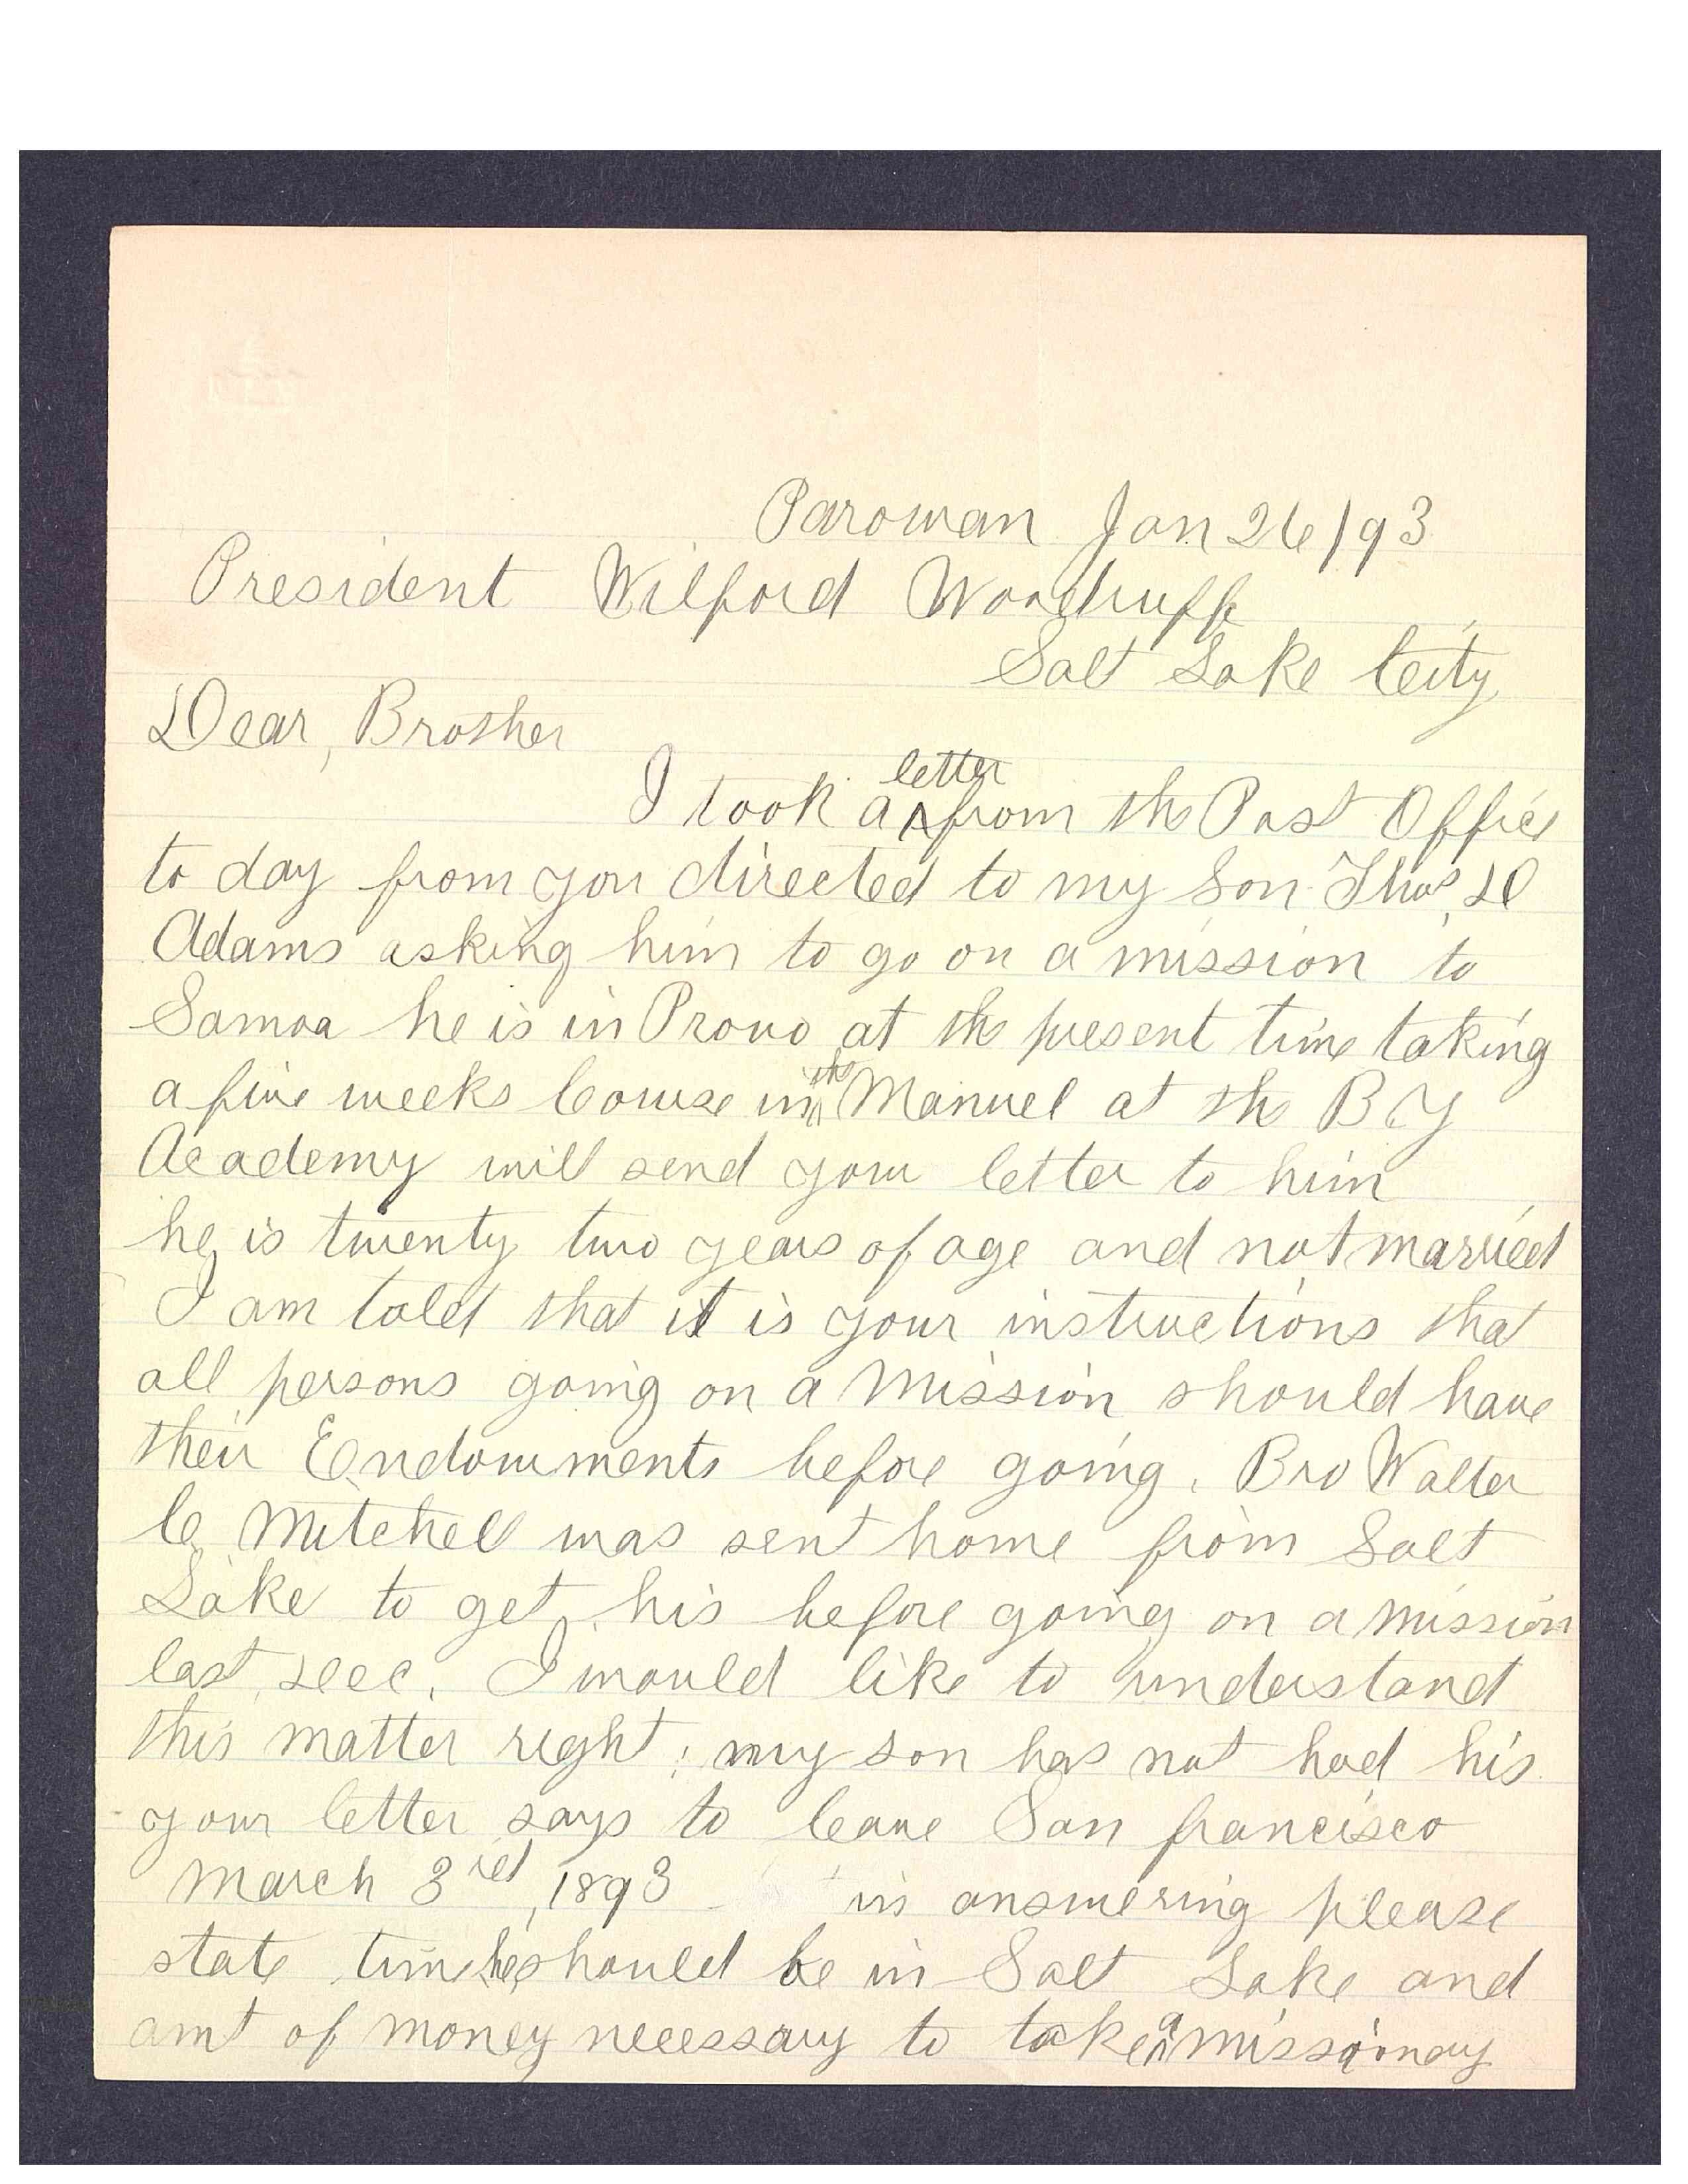 Parowan Jan 26/93
President Wilford Woodruff
Salt Lake City
Dear, Brother
letter
I took a ^ from the Post Office
to day from you directed to my Son Thos, D
Adams asking him to go on a mission to
Samoa he is in Provo at the present time taking
the
a five weeks Course in ^ Manuel at the B Y
Academy will send your letter to him
he is twenty two years of age and not married
I am told that it is your instructions that
all persons going on a Mission should have
their Endowments before going. Bro Walter
C Mitchell was sent home from Salt
Lake to get his before going on a Mission
last, Dec. I would like to understand
this matter right; my son has not had his
your letter says to leave San francisco
March 3rd, 1893 in answering please
state time he should be in Salt Lake and
a
amt of money necessary to take ^ missionary